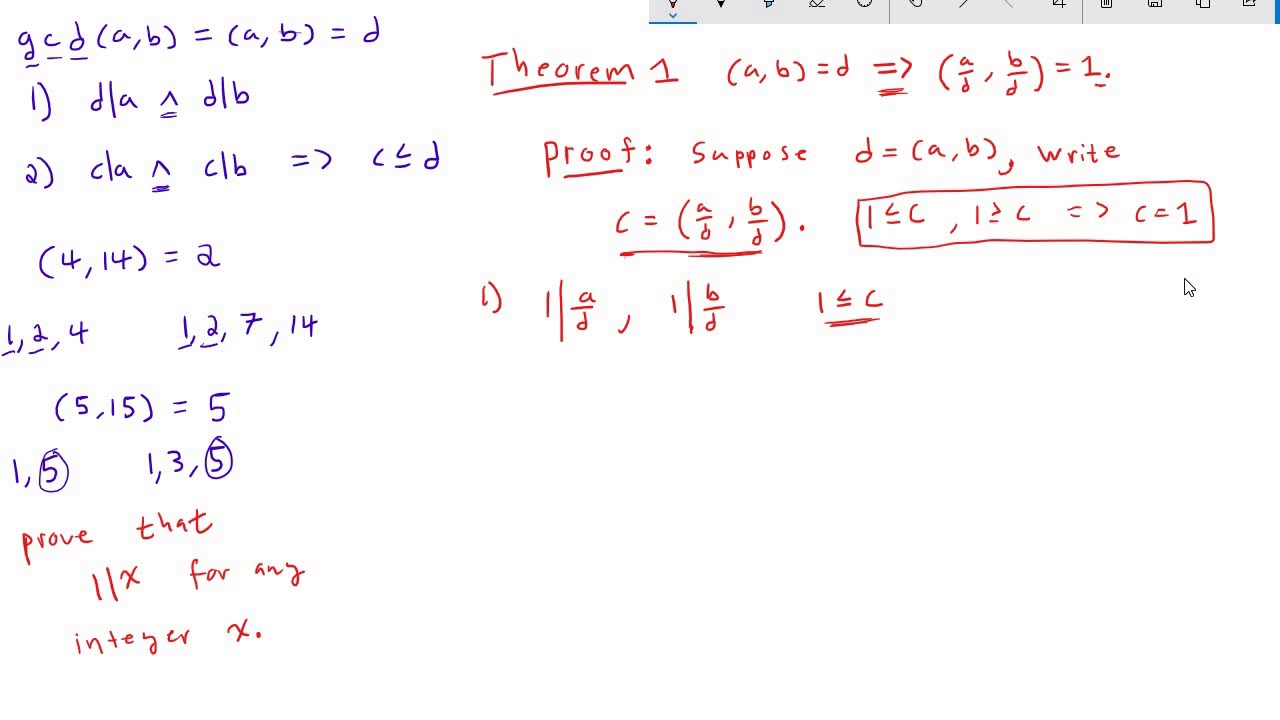 gcd(a,b) = (a,b) = d
1) d|a ∧ d|b
2) c|a ∧ c|b => c ≤ d
(4,14) = 2
1,2,4 1,2,7,14
(5,15) = 5
1,5 1,3,5
prove that
1|x for any
integer x.
Theorem 1 (a,b)=d => (a/d, b/d) = 1.
Proof: Suppose d=(a,b), write
c = (a/d, b/d). 1≤c, 1≥c => c=1
1) 1|a/d, 1|b/d 1≤c